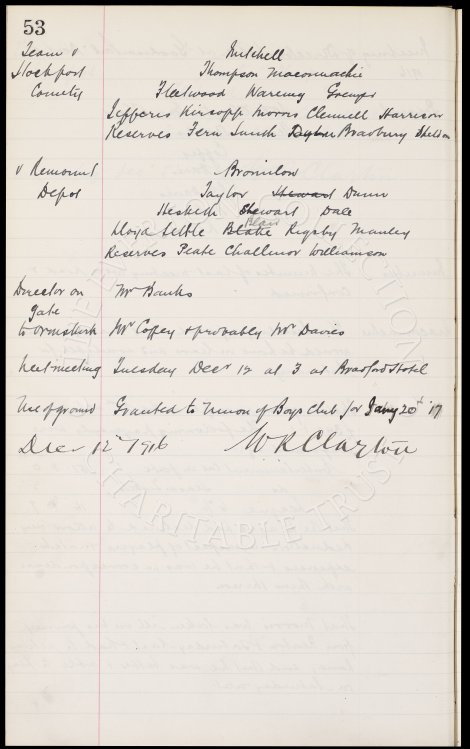 53
Team v Mitchell
Stockport Thompson Maconnachie
County Fleetwood Wareing Grenyer
Jefferis Kirsopp Morris Clennell Harrison
Reserves Fern Lunch Taylor Bradbury Skelton
v Remount Bromilow
Depot Taylor Stewart Dunn
Hesketh Stewart Dale
Blair
Lloyd Settle Blake Rigsby Manley
Reserves Peate Challinor Williamson
Director on Mr Banks
gate
to Ormskirk Mr Coffey & probably Mr Davies
Next meeting Tuesday Decr 12 at 3 at Bradford Hotel
Use of ground Granted to Union of Boys Club for Jany 20th '17
Dec 12th 1916 W R Clayton
CHARITABLE TRUST